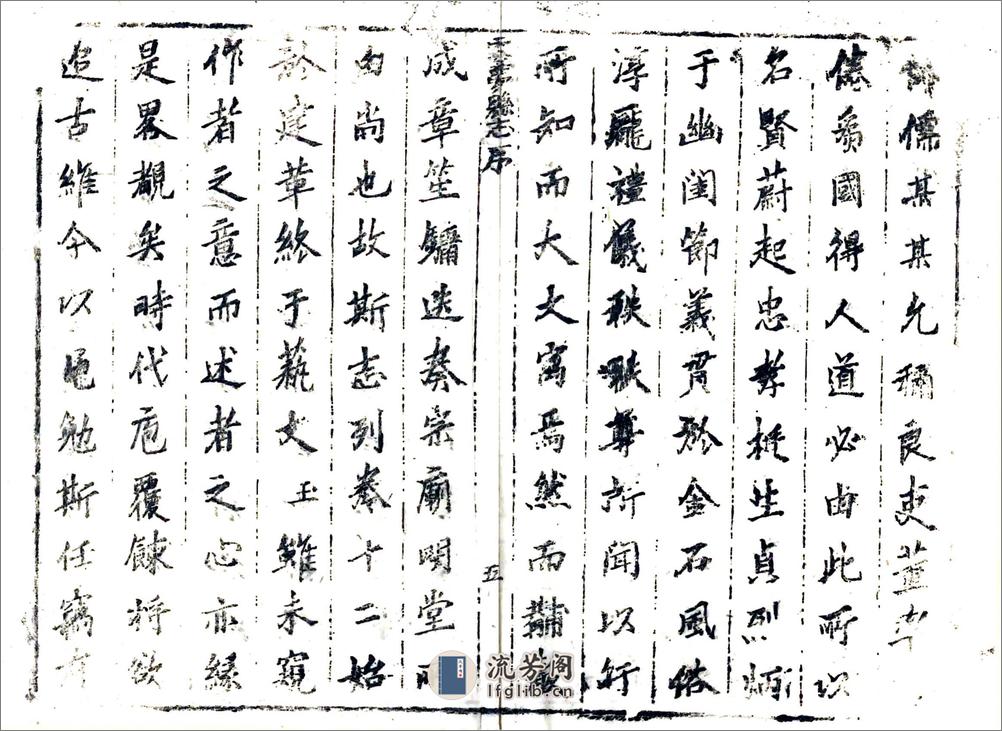 儒某某允稱良吏董率
為國得人道必由此所以
名賢蔚起忠孝挺生貞烈炳
于幽閨節義貫於金石風俗
淳龐禮儀秩秩尊所聞以行
所知而大文寓焉然而黼黻
縣志序
五
成章笙鏞迭奏宗廟明堂所
由尚也故斯志列卷十二始
於建革終于藝文玉雖未窺
作者之意而述者之心亦緣
是畧覩矣時代庖覆餗將欲
追古維今以黽勉斯任竊
流芳阁
lfglib.cn